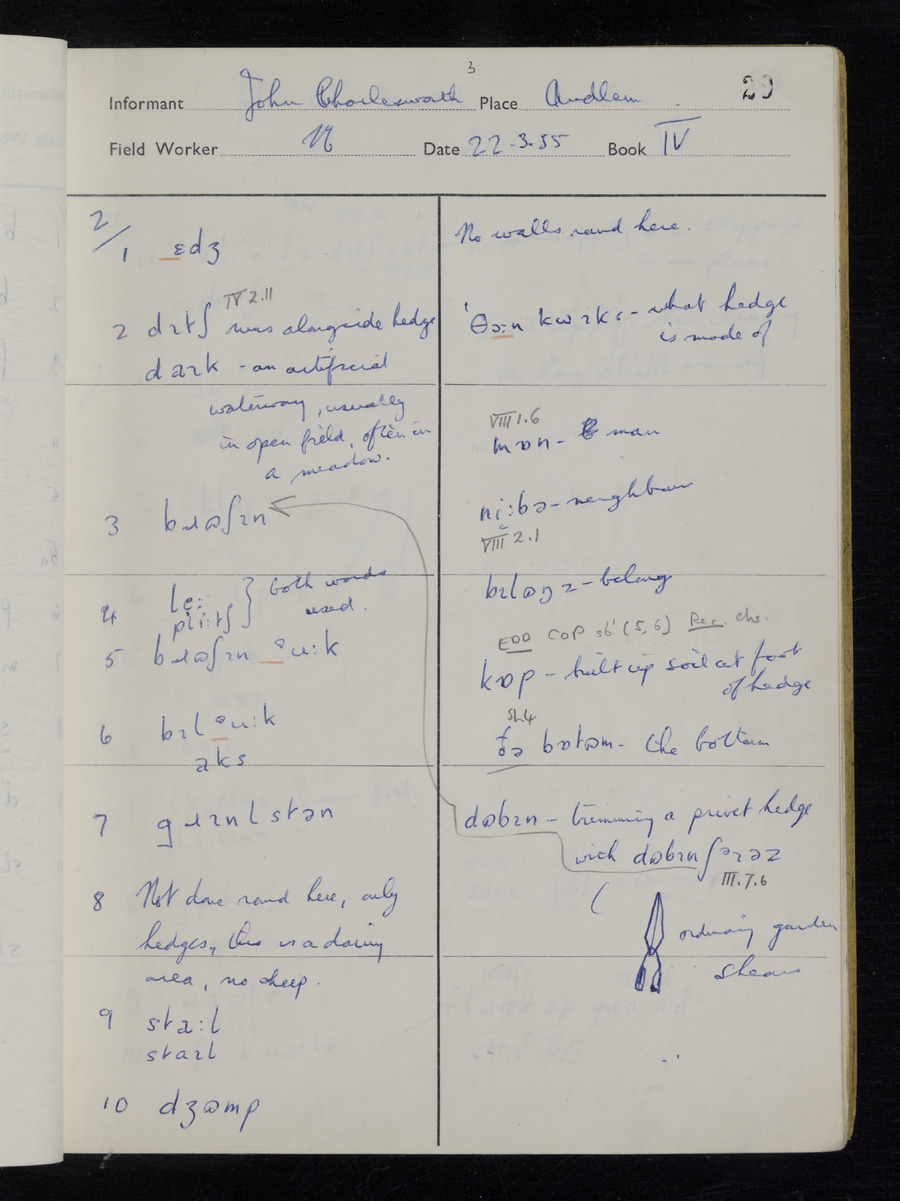 3
Informant John Charlesworth Place Audlem 29
Field Worker Date 22.3.55 Book IV
2/
1 ɛdʒ
2 dɪtʃ IV 2.11 runs alongside hedge
daɪk - an artificial
waterway, usually
in open field, often in
a meadow.
3 bɹɷʃɪn
4 le: } both words
pli:tʃ } used.
5 bɹɷʃɪn ᵊu:k
6 bɪlᵊu:k
aks
7 gɹɪnlstən
8 Not done round here, only
hedges, this is a dairy
area, no sheep.
9 sta:l
staɪl
10 dʒɷmp
No walls round here.
'θɔ:n kwɪks - what hedge
is made of
VIII 1.6
mɒn - man
ni:bə - neighbour
VIII 2.1
bɪlɒŋz - belong
EDD COP sb' (5, 6) Rec. Chs.
kɒp - built up soil at foot
of hedge
ðə bɒtəm - the bottom
dɷbɪn - trimming a privet hedge
with dɷbɪnʃɪəz
III.7.6
ordinary garden
shears